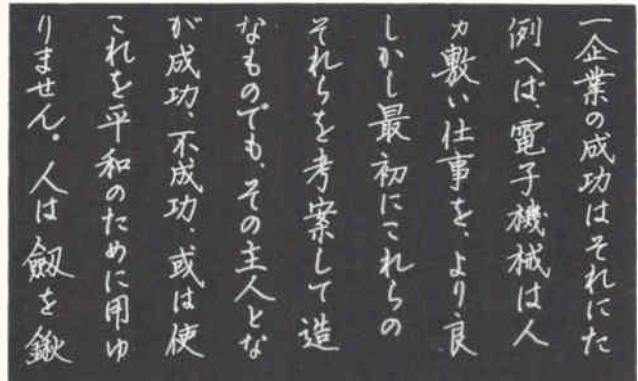 一企業の成功はそれにた
例へば、電子機械は人
カ敷い仕事を、より良
しかし最初にこれらの
それらを考案して造
なものでも、その主人とな
が成功、不成功、或は使
これを平和のために用ゆ
りません。人は劔を鍬